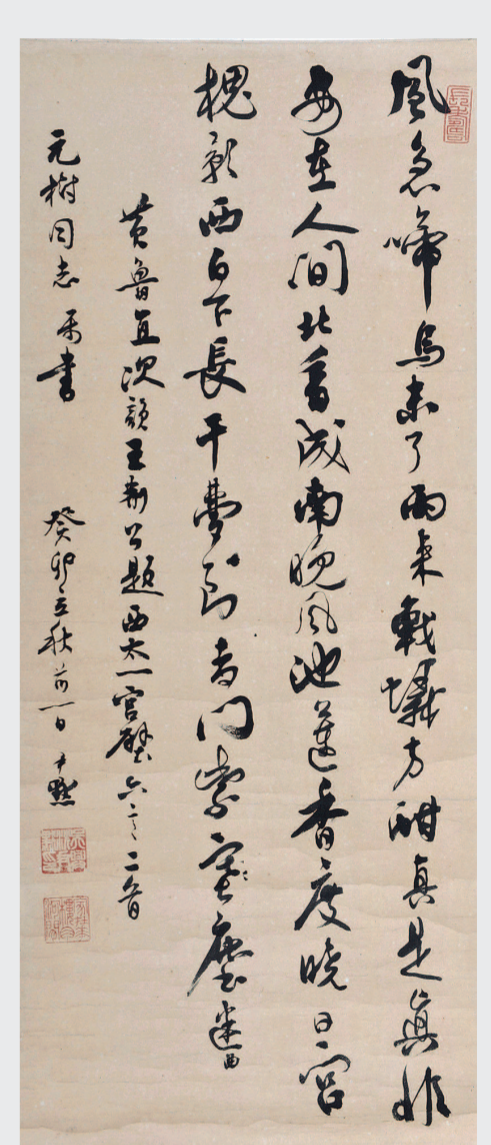 風急啼烏未了雨來戰蟻方酣真是眞非
安在人間北看成南晚風池蓮香度曉日宮
槐影西白下長干夢到青門紫塞塵迷曲
黃魯直次韻王荊公題西太一宮壁六言二首
元樹同志屬書 癸卯立秋前一日 尹默